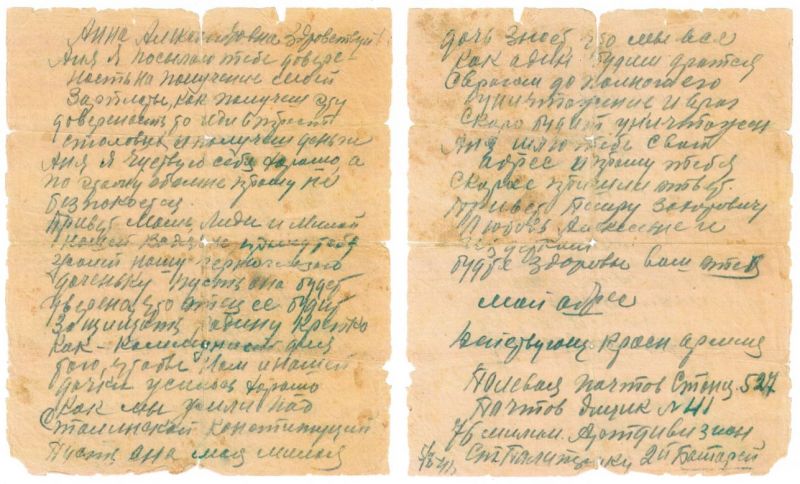 Анна Александровна Здравствуй!
Аня я посылаю тебе довере-
ность на получение моей
Зарплаты, как получиш эту
доверенность то иди в трест
столовых и получиш деньги
Аня я чуствую себя хорошо, а
по этому обо мне прошу не
безпокоется.
Привет Маме, Лиде и Милой
нашей
доченьку пусть она будет
уверена что отец ее будет
Защищать родину крепко
Как Коммунист для
того, чтобы Нам и нашей
дочки жилось хорошо
Как мы жили под
Сталинской Конституцией
Пусть она моя милая
дочь знает что мы все
Как адин будим дратся
С врагом до полного его
уничтожение и враг
Скоро будит уничтожен
Аня шлю тебе Свой
адрес и прошу тебя
Скорее пришли ответ.
Привет Петру Захаровичу
Любовь Алексеевне и
их детям
будте Здоровы ваш отец
мой адрес
Действующ. Красн армия
Полевая почтов Станц. 527
Почтов Ящик № 41
76 милим. Артдивизион
Ст. Политруку 2й Батареи